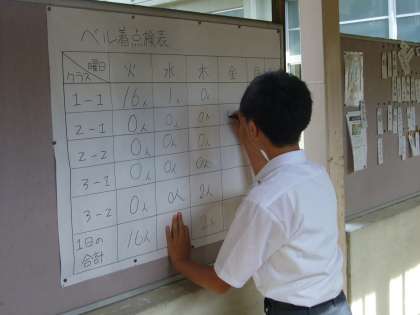 ベル着点検表
曜日 火 水 木 金 月
クラス
1-1 16人 1人 0人
2-1 0人 0人 0人
2-2 0人 0人 0人
3-1 0人 0人 0人
3-2 0人 0人 2人
1日の合計 16人 2人